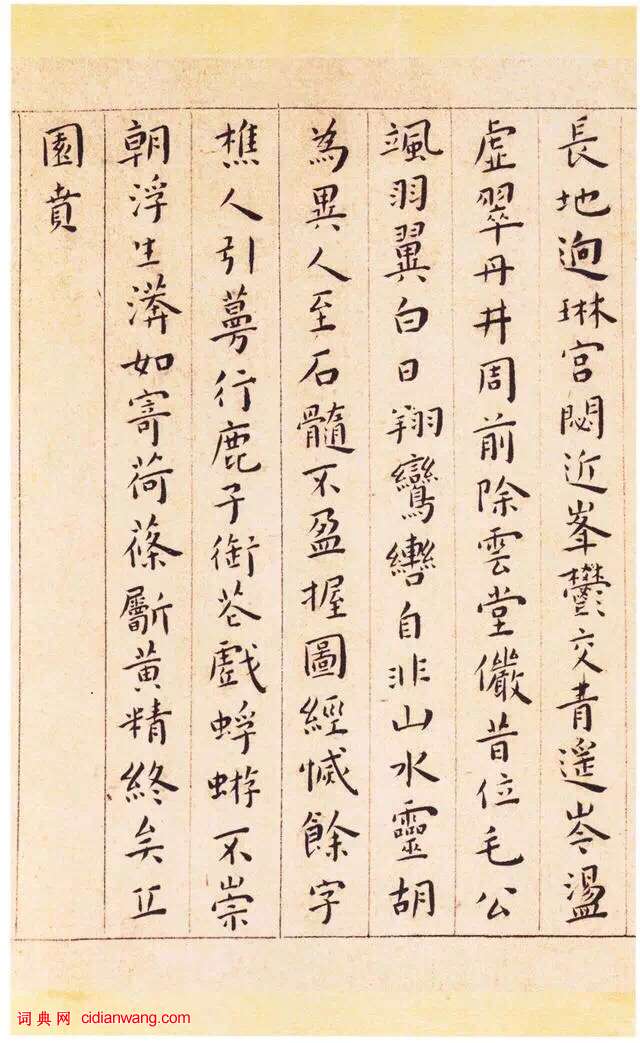 長地逈琳宮閟近峯鬱交青遥岑盪
虚翠丹井周前除雲堂儼昔位毛公
颯羽翼白日翔鸞轡自非山水靈胡
為異人至石髓不盈握圖經惐餘字
樵人引蔓行鹿子銜花戲蜉蝣不崇
朝浮生渀如寄荷蓧斸黄精終矣丘
園賁
词典网 cidianwang.com